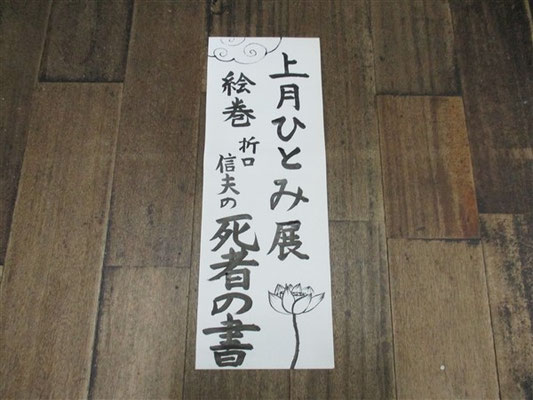 上月ひとみ展
絵巻 折口信夫の死者の書